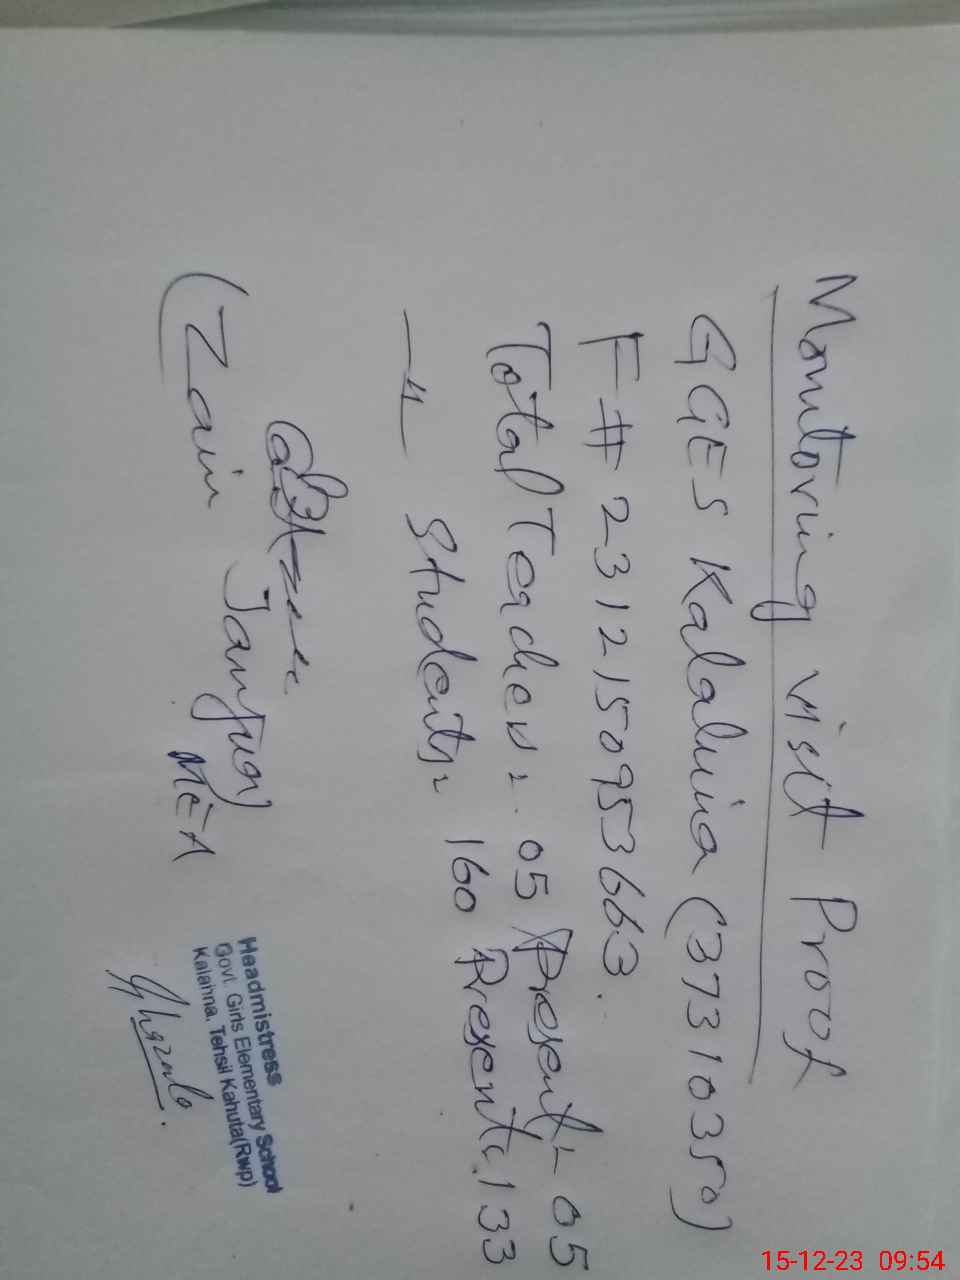 Monitoring visit Proof
GGES Kalahna (37310350)
F# 2312150953663.
Total Teachers = 05 Present = 05
—"— Students = 160 Present = 133
(Zain Janjua)
MEA
Headmistress
Govt. Girls Elementary School
Kalahna, Tehsil Kahuta(Rwp)
15-12-23 09:54